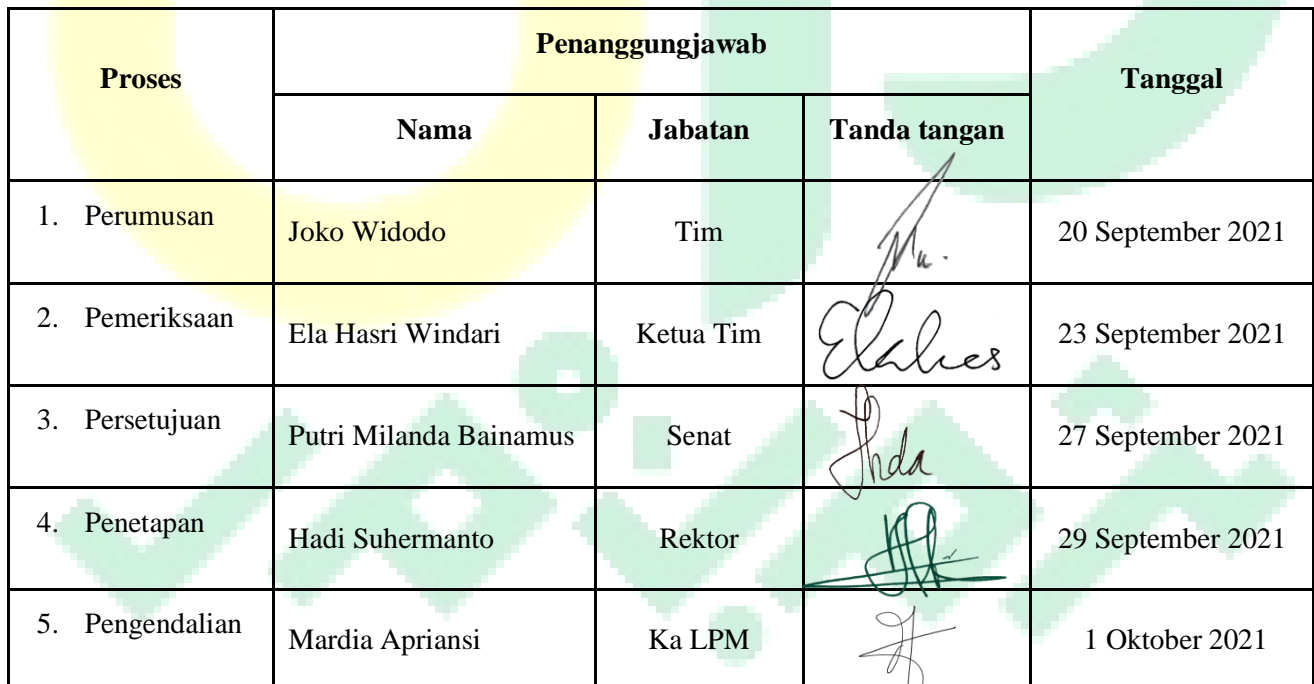 Proses
Penanggungjawab
Tanggal
Nama
Jabatan
Tanda tangan
1. Perumusan
Joko Widodo
Tim
20 September 2021
2. Pemeriksaan
Ela Hasri Windari
Ketua Tim
23 September 2021
3. Persetujuan
Putri Milanda Bainamus
Senat
27 September 2021
4. Penetapan
Hadi Suhermanto
Rektor
29 September 2021
5. Pengendalian
Mardia Apriansi
Ka LPM
1 Oktober 2021